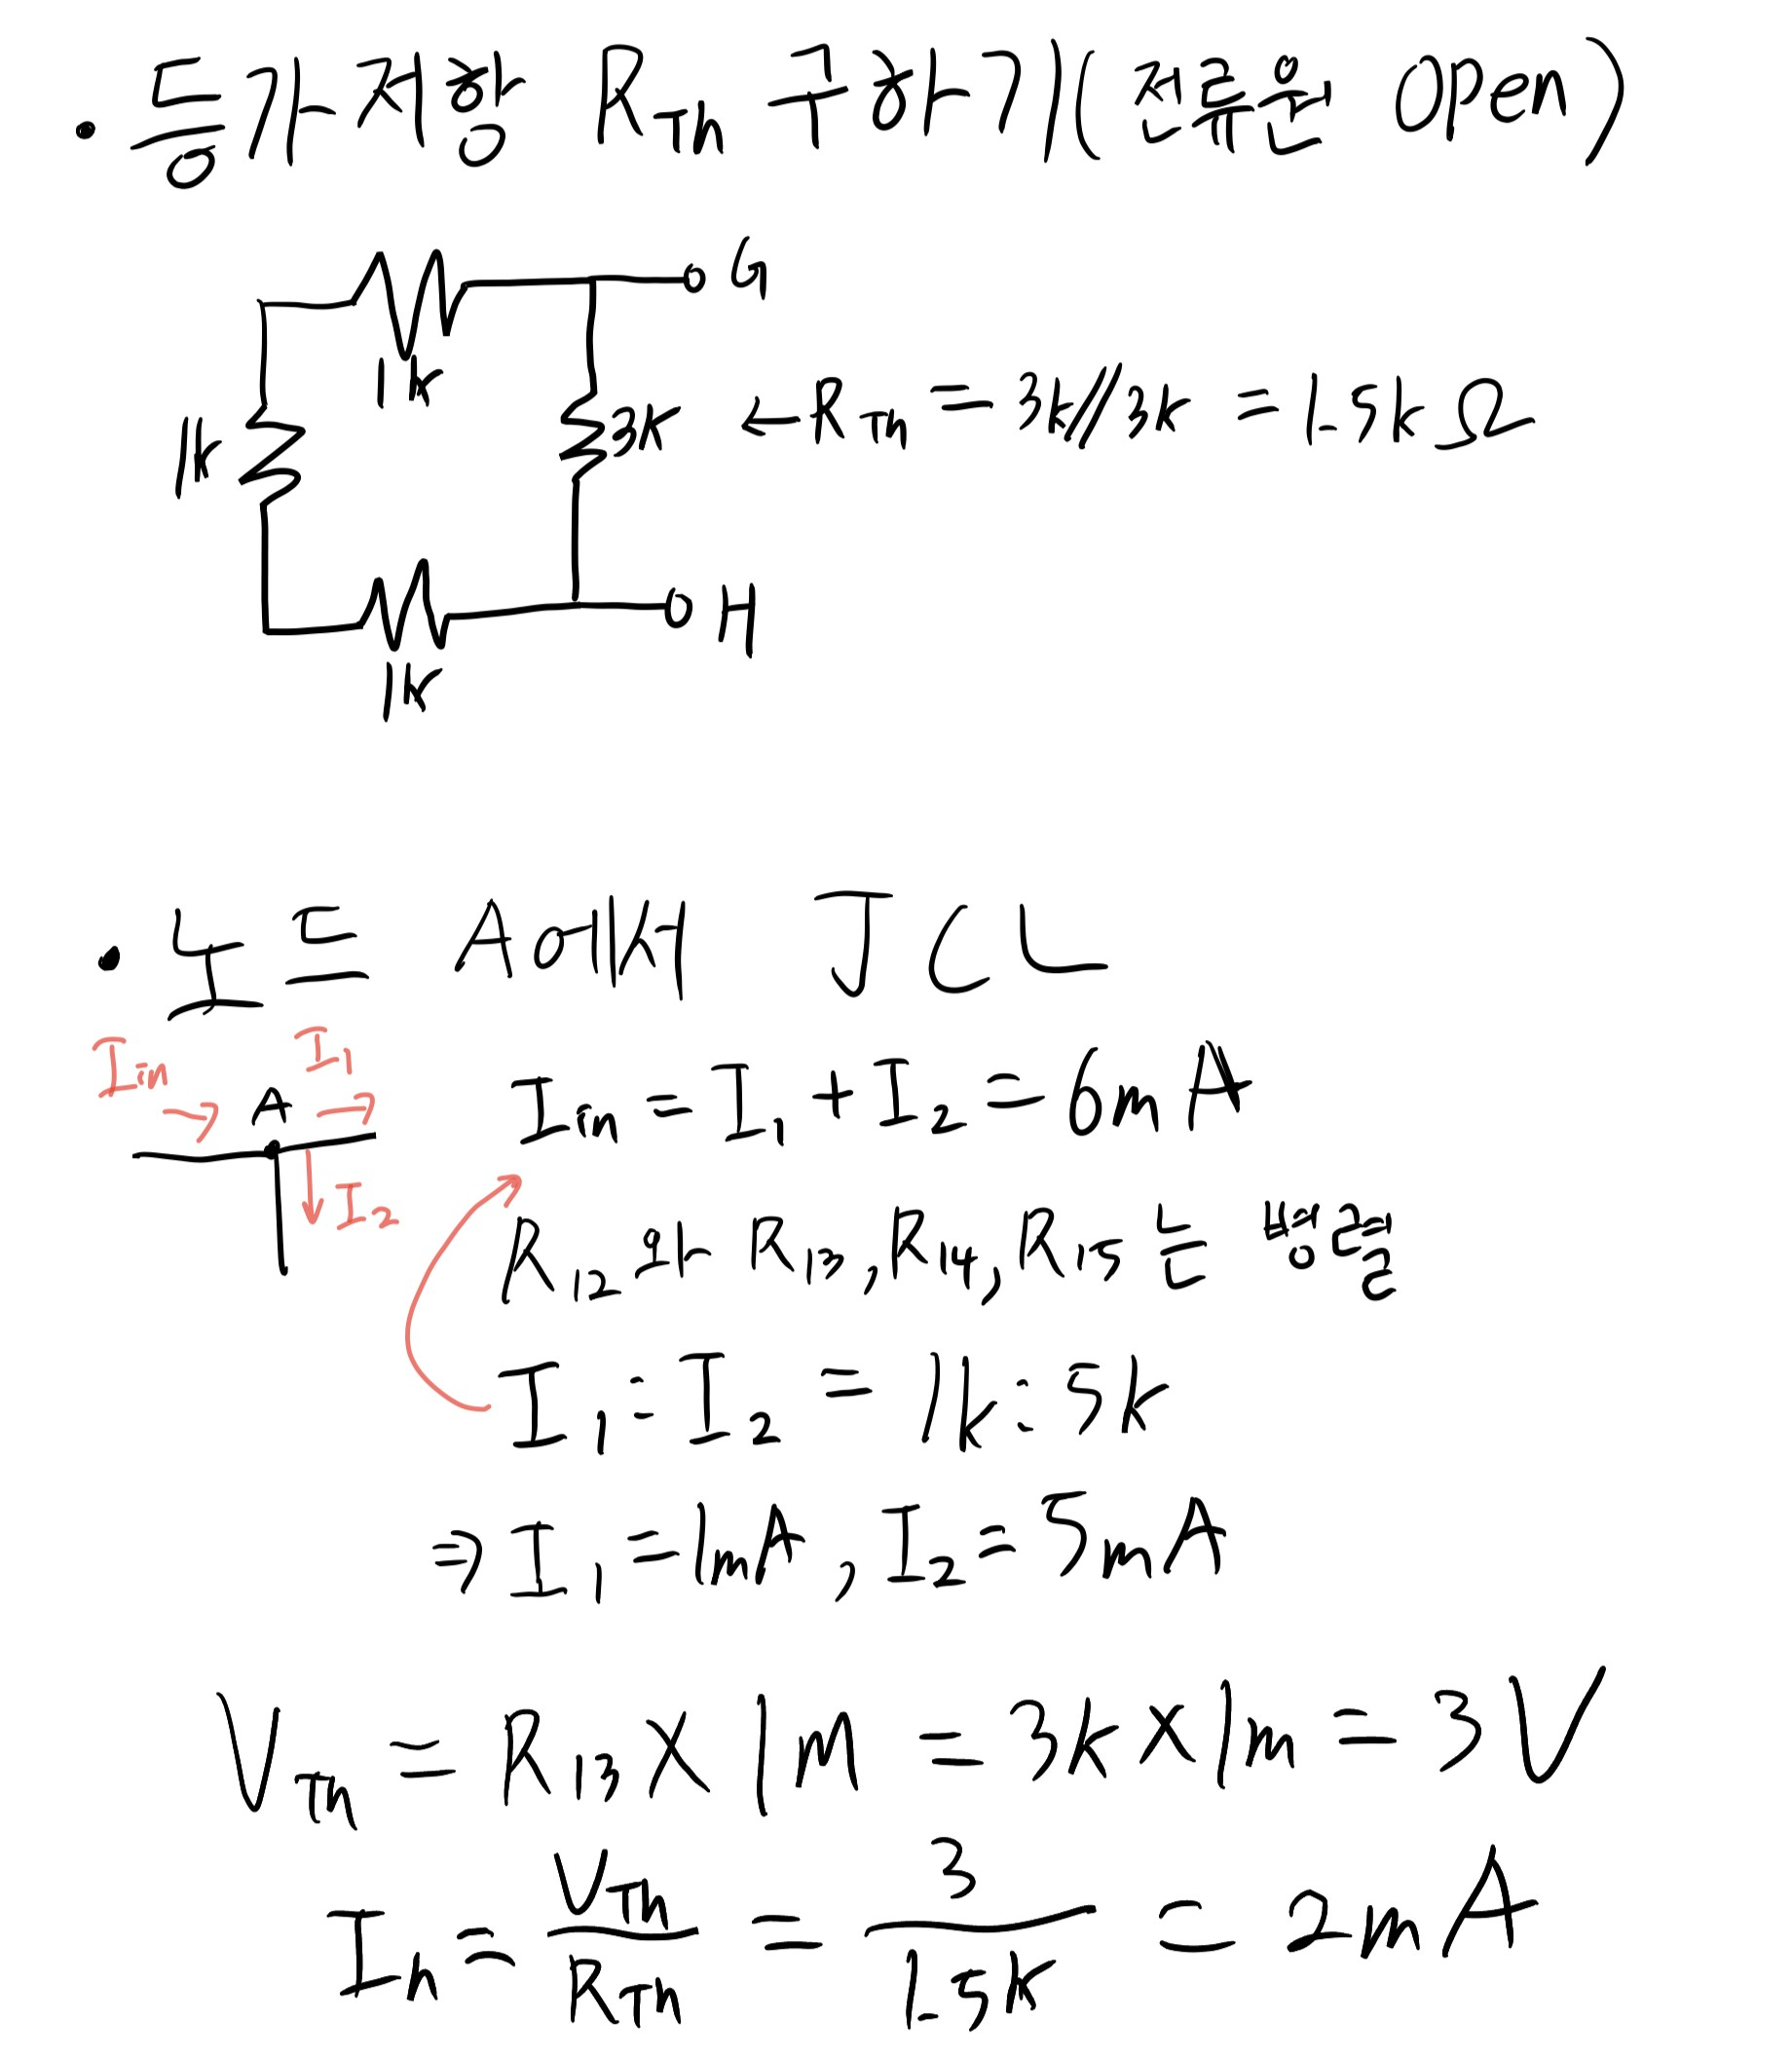 · 등가저항 RTh 구하기(전류원 open)
G
1k
1k
3k ← RTh = 3k//3k = 1.5kΩ
H
1k
· 노드 A에서 JCL
Iin → A I1 →
Iin = I1 + I2 = 6mA
↓ I2
R12와 R13, R14, R15는 병렬
I1 : I2 = 1k : 5k
⇒ I1 = 1mA, I2 = 5mA
VTh = R13 X 1m = 3k X 1m = 3V
In = VTh / RTh = 3 / 1.5k = 2mA